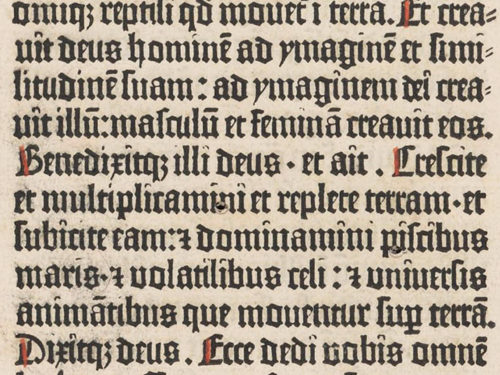 omniqꝫ reptili qď mouet̄ ī terra. Et crea-
uit deus hominē ad ymaginē et simi-
litudinē suam: ad ymaginem dei crea-
uit illū: masculū et feminā creauit eos.
Benedixitqꝫ illi deus · et ait . Crescite
et multiplicamini et replete terram · et
subicite eam: ⁊ dominamini piscibus
maris · ⁊ uolatilibus celi : ⁊ uniuersis
animātibus que mouentur suꝑ terrā.
Dixitqꝫ deus . Ecce dedi uobis omnē